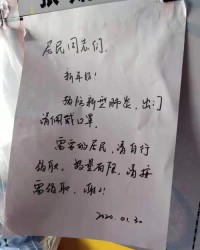 居民同志们,
新年好!
预防新型肺炎,出门
请佩戴口罩.
需要的居民,请自行
领取,数量有限,请按
需领取,谢谢!
2020.01.30